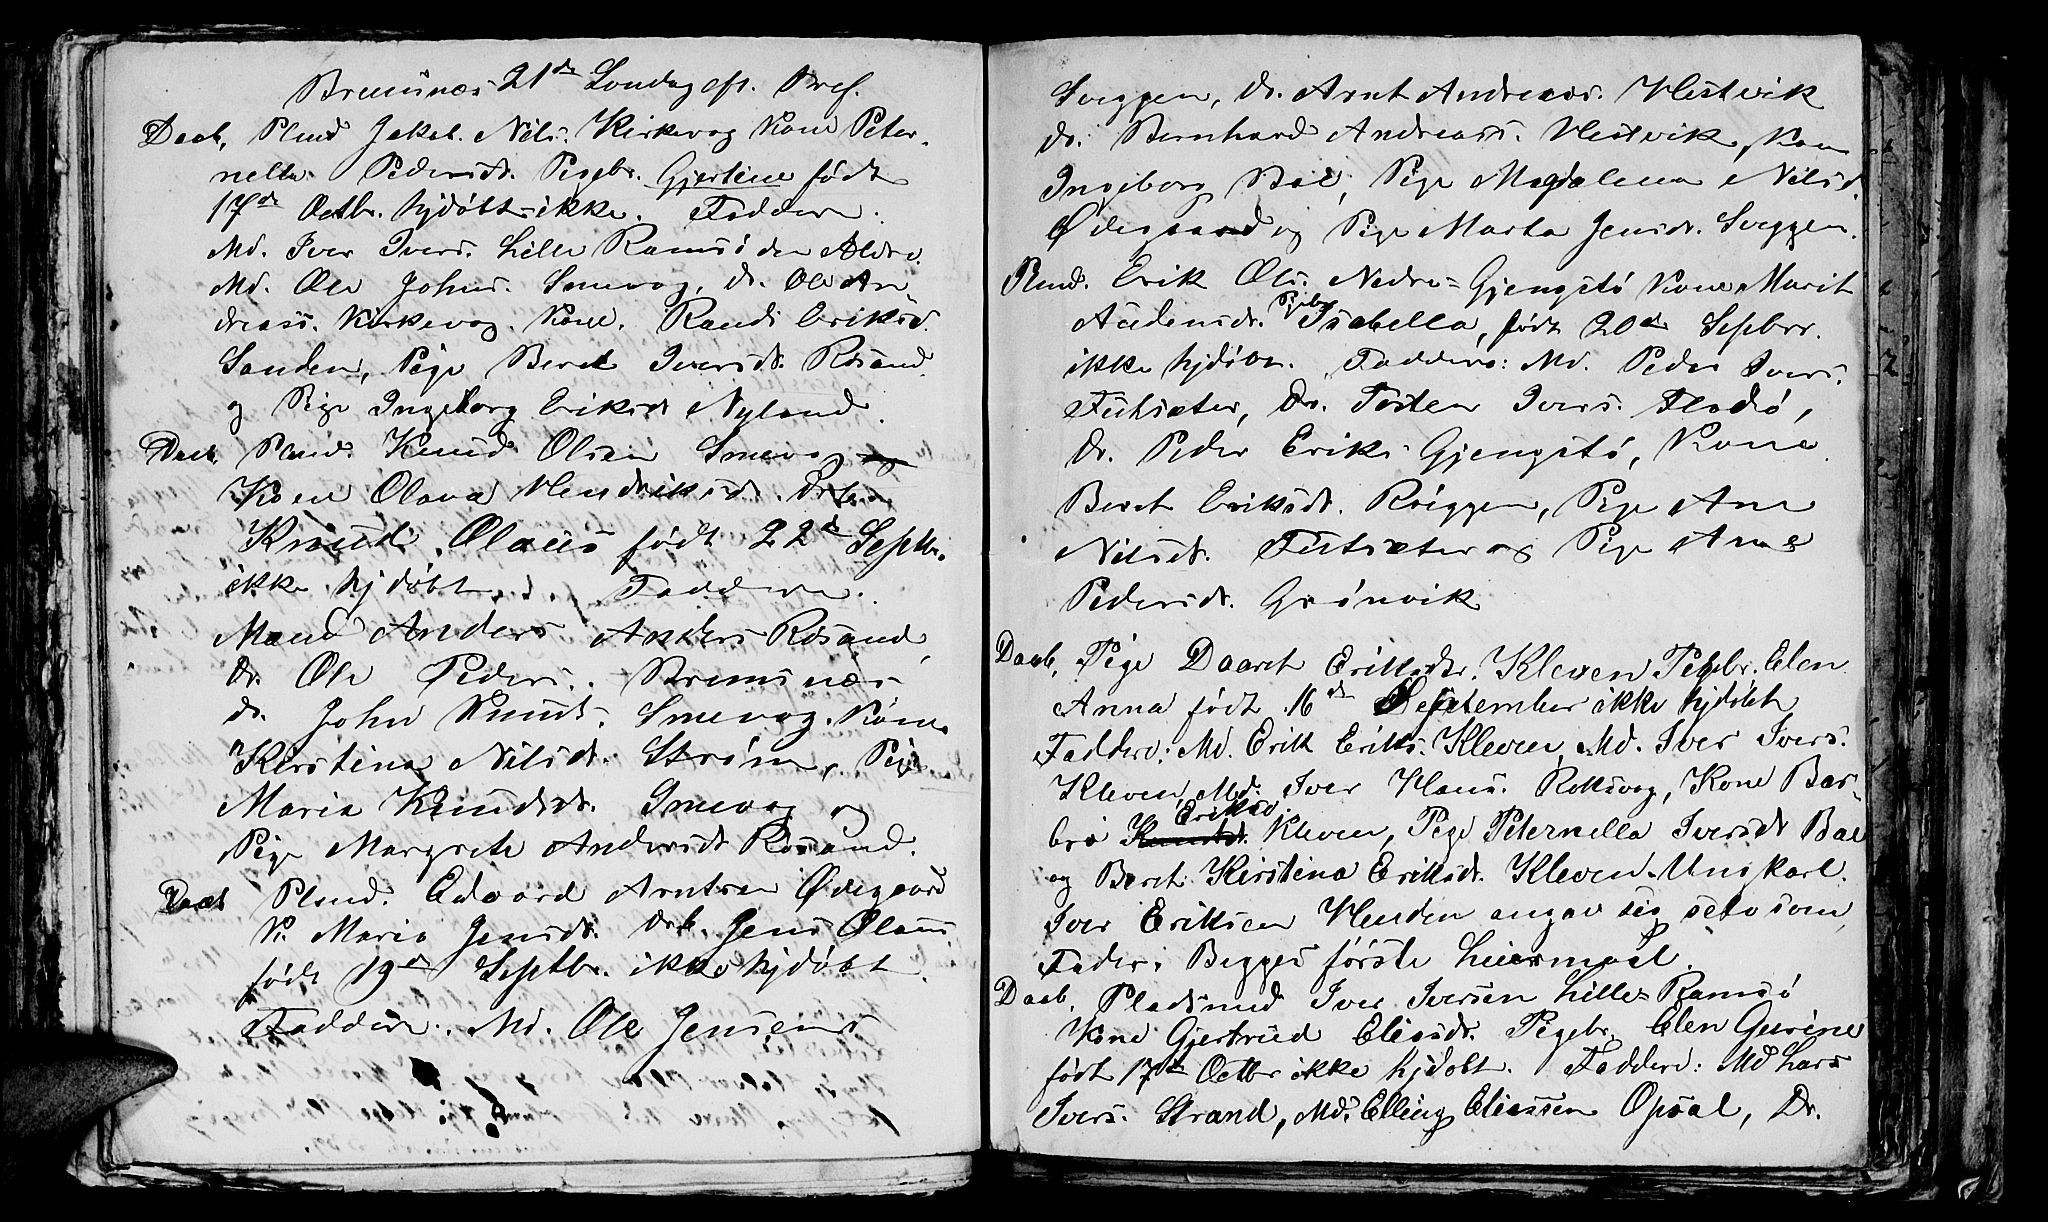 Bremsnes 21de Søndag eft. Tref.
Daab, Plmd Jakob Nils. Kirkevog Kone Peter-
nella Pedersdt. Pigebr. Gjertine født
17de Octbr. hjdøbt ikke. Faddere.
Md. Iver Ivers. Lille Ramsø den Ældre.
Md. Ole Johns. Smevog, Dr. Ole An
dreass. Kirkevog. Kone. Randi Eriksd.
Sanden, Pige Beret Iversdt. Røsand.
og Pige Ingeborg Eriksdt Nyland.
Daab, Plmd. Knud Olsen Smevog
Kone Olava Hendriksdt. Drb.
Knud Olaus født 22de Septbr.
ikke hjdøbt. Faddere.
Mand Anders Anders Røsand,
Dr. Ole Peders. Bremsnæs
dr. John Knuts. Smevog. Kone
Kirstina Nilsdt. Strøm, Pige
Maria Knudsdt. Smevog og
Pige Margrete Andersdt Røsand.
Daab Plmd. Edvard Arntsen Ødegaard
K. Maria Jensdt. Drb. Jens Olaus
født 19de Septbr. ikke hjdøbt.
Faddere. Md. Ole Jensens
Sveggen, Dr. Arnt Andreass. Hestvik
dr. Bernhard Andreass. Hestvik, Kone
Ingeborg Bøe, Pige Magdalena Nilsd.
Ødegaard og Pige Marta Jensdt. Sveggen.
Plmd. Erik Ols. Nedre-Gjengstø Kone Marit
Audensdt. Pigebr Isabella, født 20de Septbr.
ikke hjdøbt. Faddere: Md. Peder Ivers.
Futsæter, Dr. Tosten Ivers. Flodø,
Dr. Peder Eriks Gjengstø, Kone
Beret Eriksdt. Røiggen, Pige Ane
Nilsdt. Futsæter og Pige Ane
Pedersdt. Grønvik
Daab, Pige Daaret Eriksdtr. Kleven Pigebr. Elen
Anna født 16de September ikke hjdøbt
Faddere: Md. Erik Eriks. Kleven, Md. Iver Ivers.
Kleven, Md. Iver Hans. Roksvog, Kone Bar-
bro Knutsdt. Eriksd. Kleven, Pige Peternella Iversdt Bøe
og Beret Kirstina Eriksdt. Kleven. Ungkarl.
Iver Eriksen Henden angav sig selv som
Fader. Begges første Leiermaal.
Daab, Pladsmd Iver Iversen Lille-Ramsø
Kone Gjertrud Eliasdt. Pigebr. Elen Gurine
født 17de Octbr ikke hjdøbt. Faddere: Md Lars
Ivers. Strand, Md. Elling Eliassen Opsal, Dr.